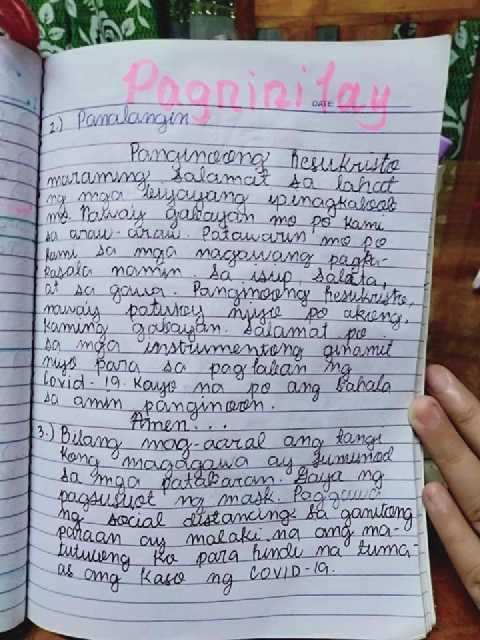 Pagninilay
DATE:
2.) Panalangin
Panginoong Hesukristo
maraming salamat sa lahat
ng mga biyayang ipinagkaloob
mo. Naway gabayan mo po kami
sa araw-araw. Patawarin mo po
kami sa mga nagawang pagka-
kasala namin. Sa isip, salita,
at sa gawa. Panginoong Hesukristo,
naway patuloy niyo po akong,
kaming gabayan. Salamat po
sa mga instrumentong ginamit
niyo para sa paglaban ng
Covid-19. Kayo na po ang bahala
sa amin panginoon.
Amen...
3.) Bilang mag-aaral ang tangi
kong magagawa ay sumunod
sa mga patakaran. Gaya ng
pagsusuot ng mask. Paggawa
ng social distancing sa ganitong
paraan ay malaki na ang ma-
tutulong ko para hindi na tuma-
as ang kaso ng COVID-19.